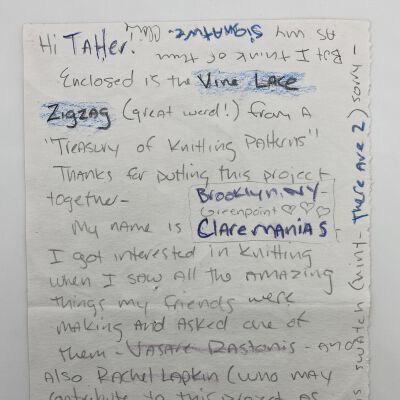 Hi Tatter!
Enclosed is the Vine Lace
Zigzag (great word!) from A
"Treasury of Knitting Patterns"
Thanks for putting this project
together-
Brooklyn, NY-
Greenpoint ♡♡♡
My name is Claremanias
I got interested in knitting
when I saw all the amazing
things my friends were
making and asked one of
them - Vasare Rastonis - and
also Rachel Lapkin (who may
contribute to this project as
swatch (hint- There are 2) sorry -
But I think of them
as my signature.